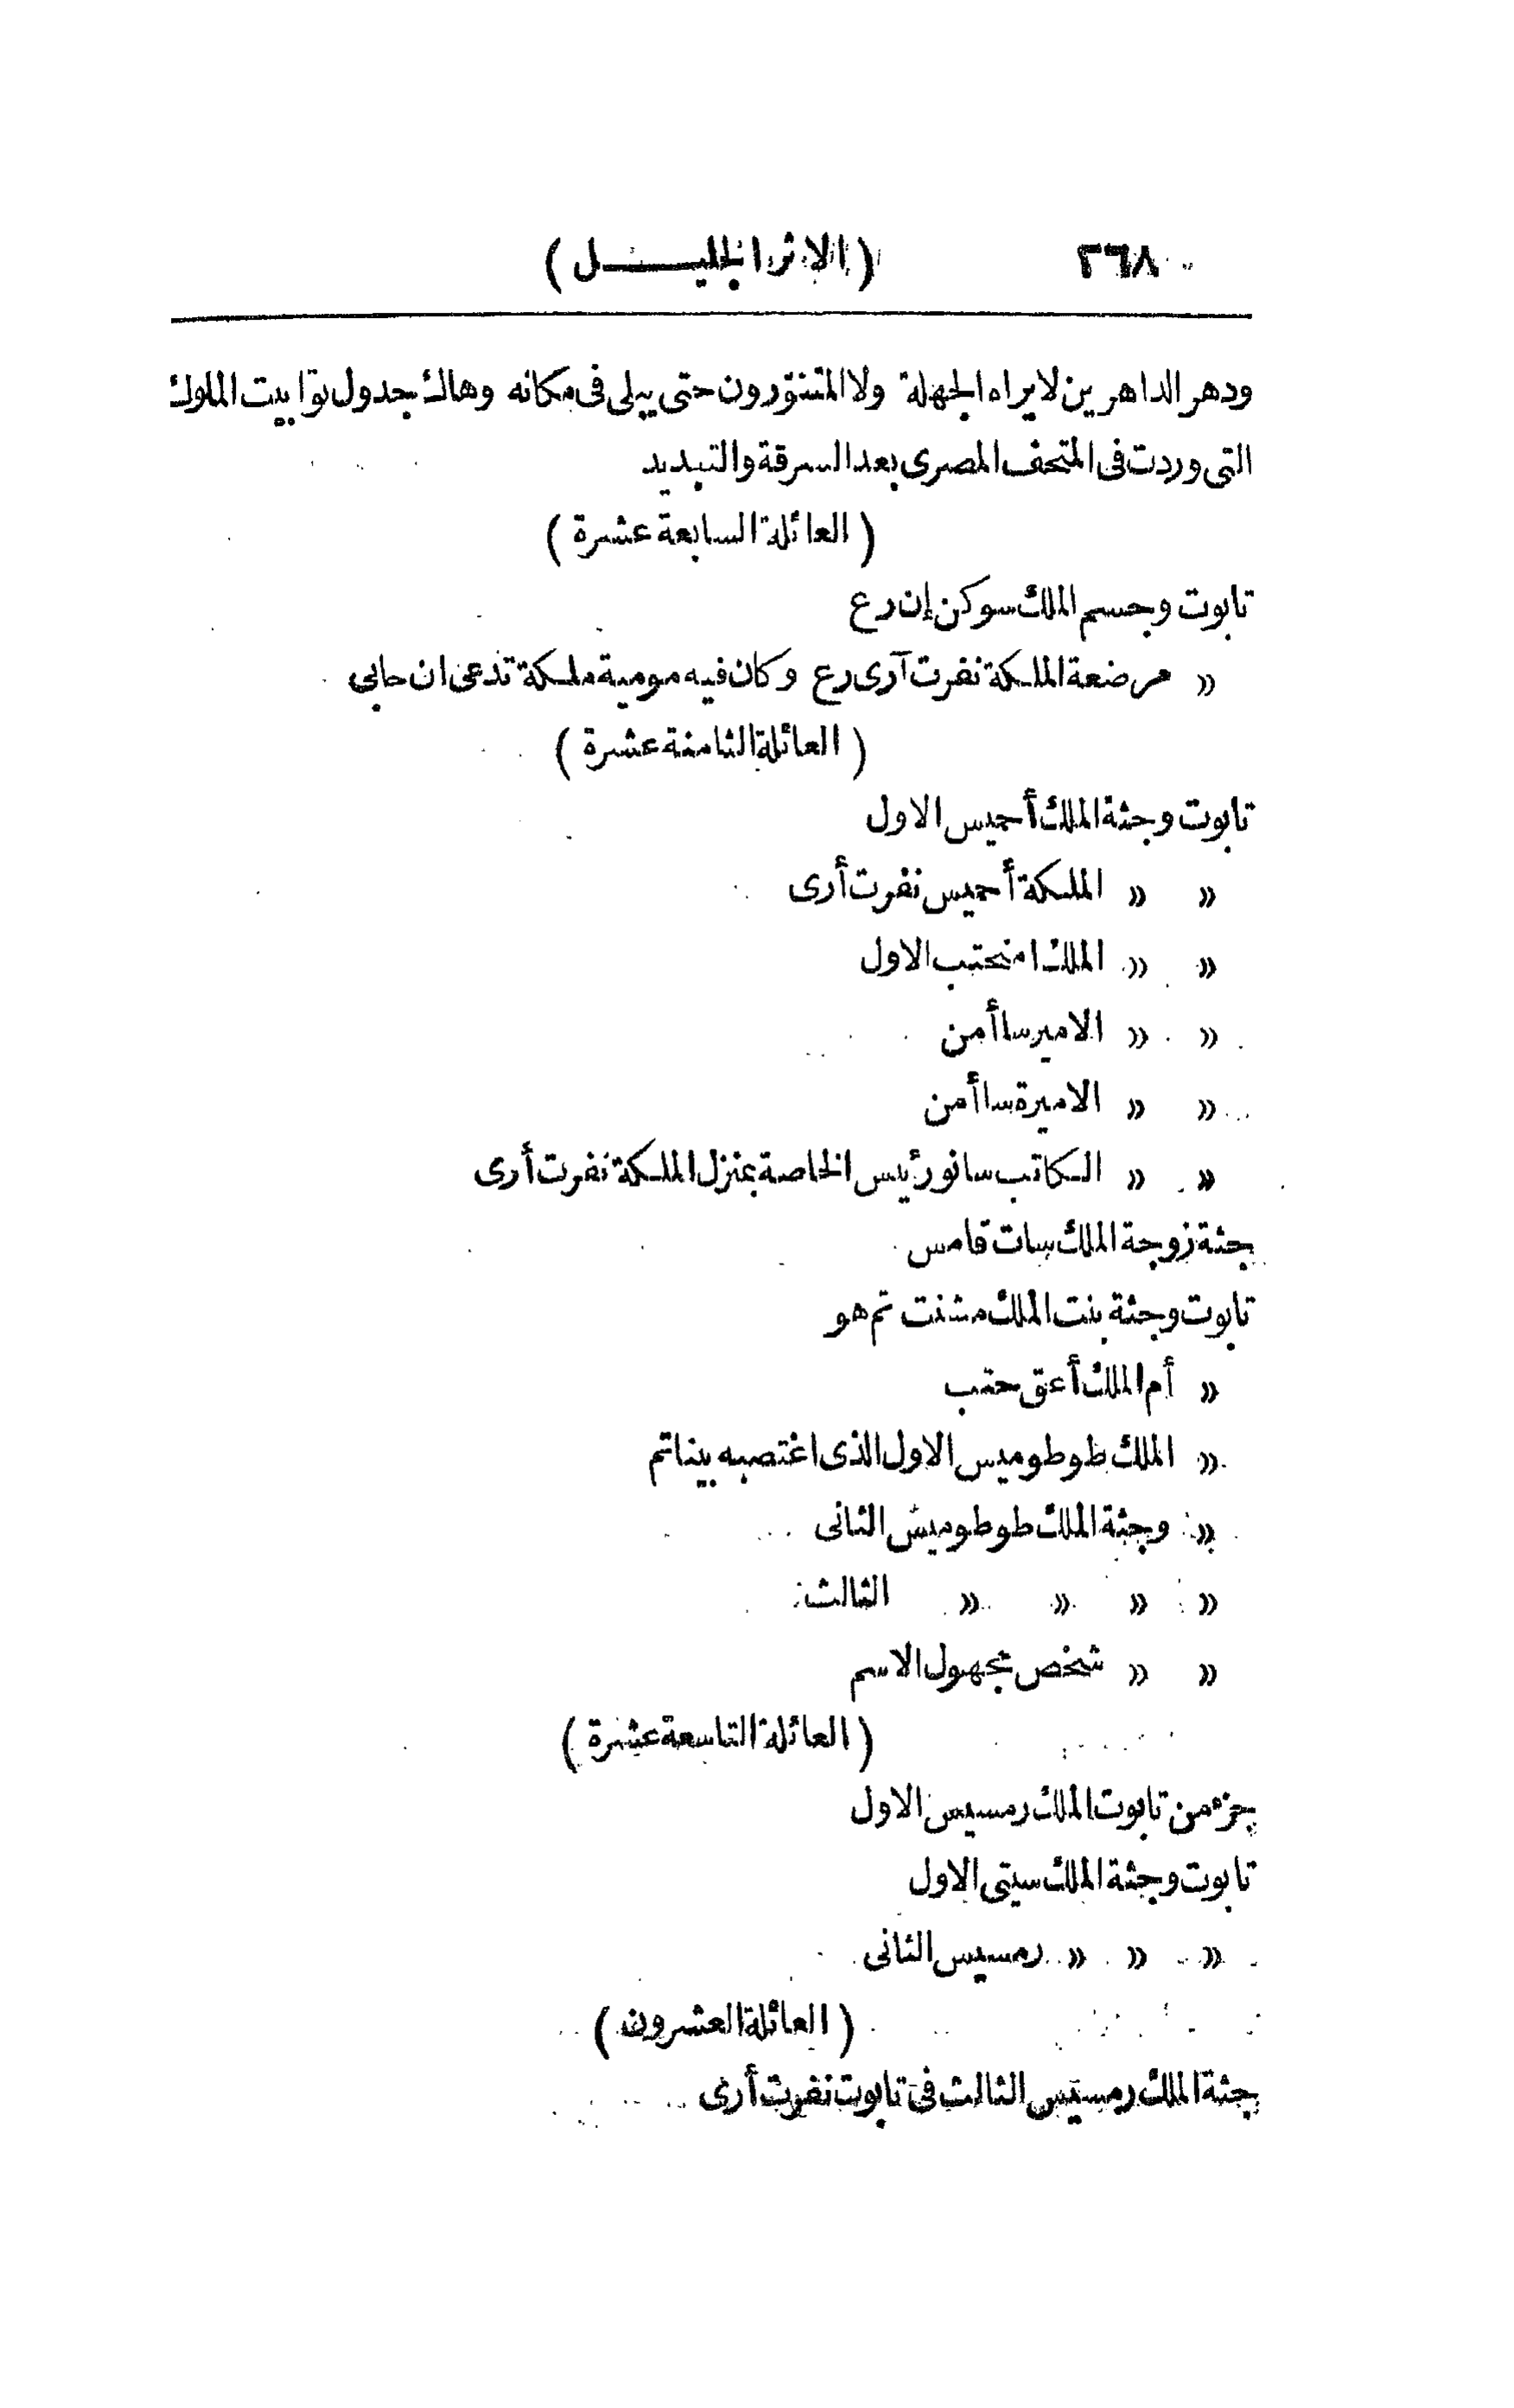 ٣٦٨ (الاثر الجليل)
ودهر الداهرين لا يراه الجهلة ولا المتنوّرون حتى يبلى فى مكانه وهاك جدول توابيت الملوك
التى وردت فى المتحف المصرى بعد السرقة والتبديد
(العائلة السابعة عشرة)
تابوت وجسم الملك سوكن إن رع
» مرضعة الملكة نفرت آرى رع وكان فيه مومية ملكة تدعى ان حابى
(العائلة الثامنة عشرة)
تابوت وجثة الملك أحميس الاول
» » الملكة أحميس نفرت أرى
» » الملك امنحتب الاول
» » الامير سا أمن
» » الاميرة سا أمن
» » الكاتب سانو رئيس الخاصة بمنزل الملكة نفرت أرى
جثة زوجة الملك سات قامس
تابوت وجثة بنت الملك مشنت تم هو
» أم الملك أعق حتب
» الملك طوطوميس الاول الذى اغتصبه بيناتم
» وجثة الملك طوطوميس الثانى
» » » » الثالث
» » شخص مجهول الاسم
(العائلة التاسعة عشرة)
جزء من تابوت الملك رمسيس الاول
تابوت وجثة الملك سيتى الاول
» » » رمسيس الثانى
(العائلة العشرون)
جثة الملك رمسيس الثالث فى تابوت نفرت أرى